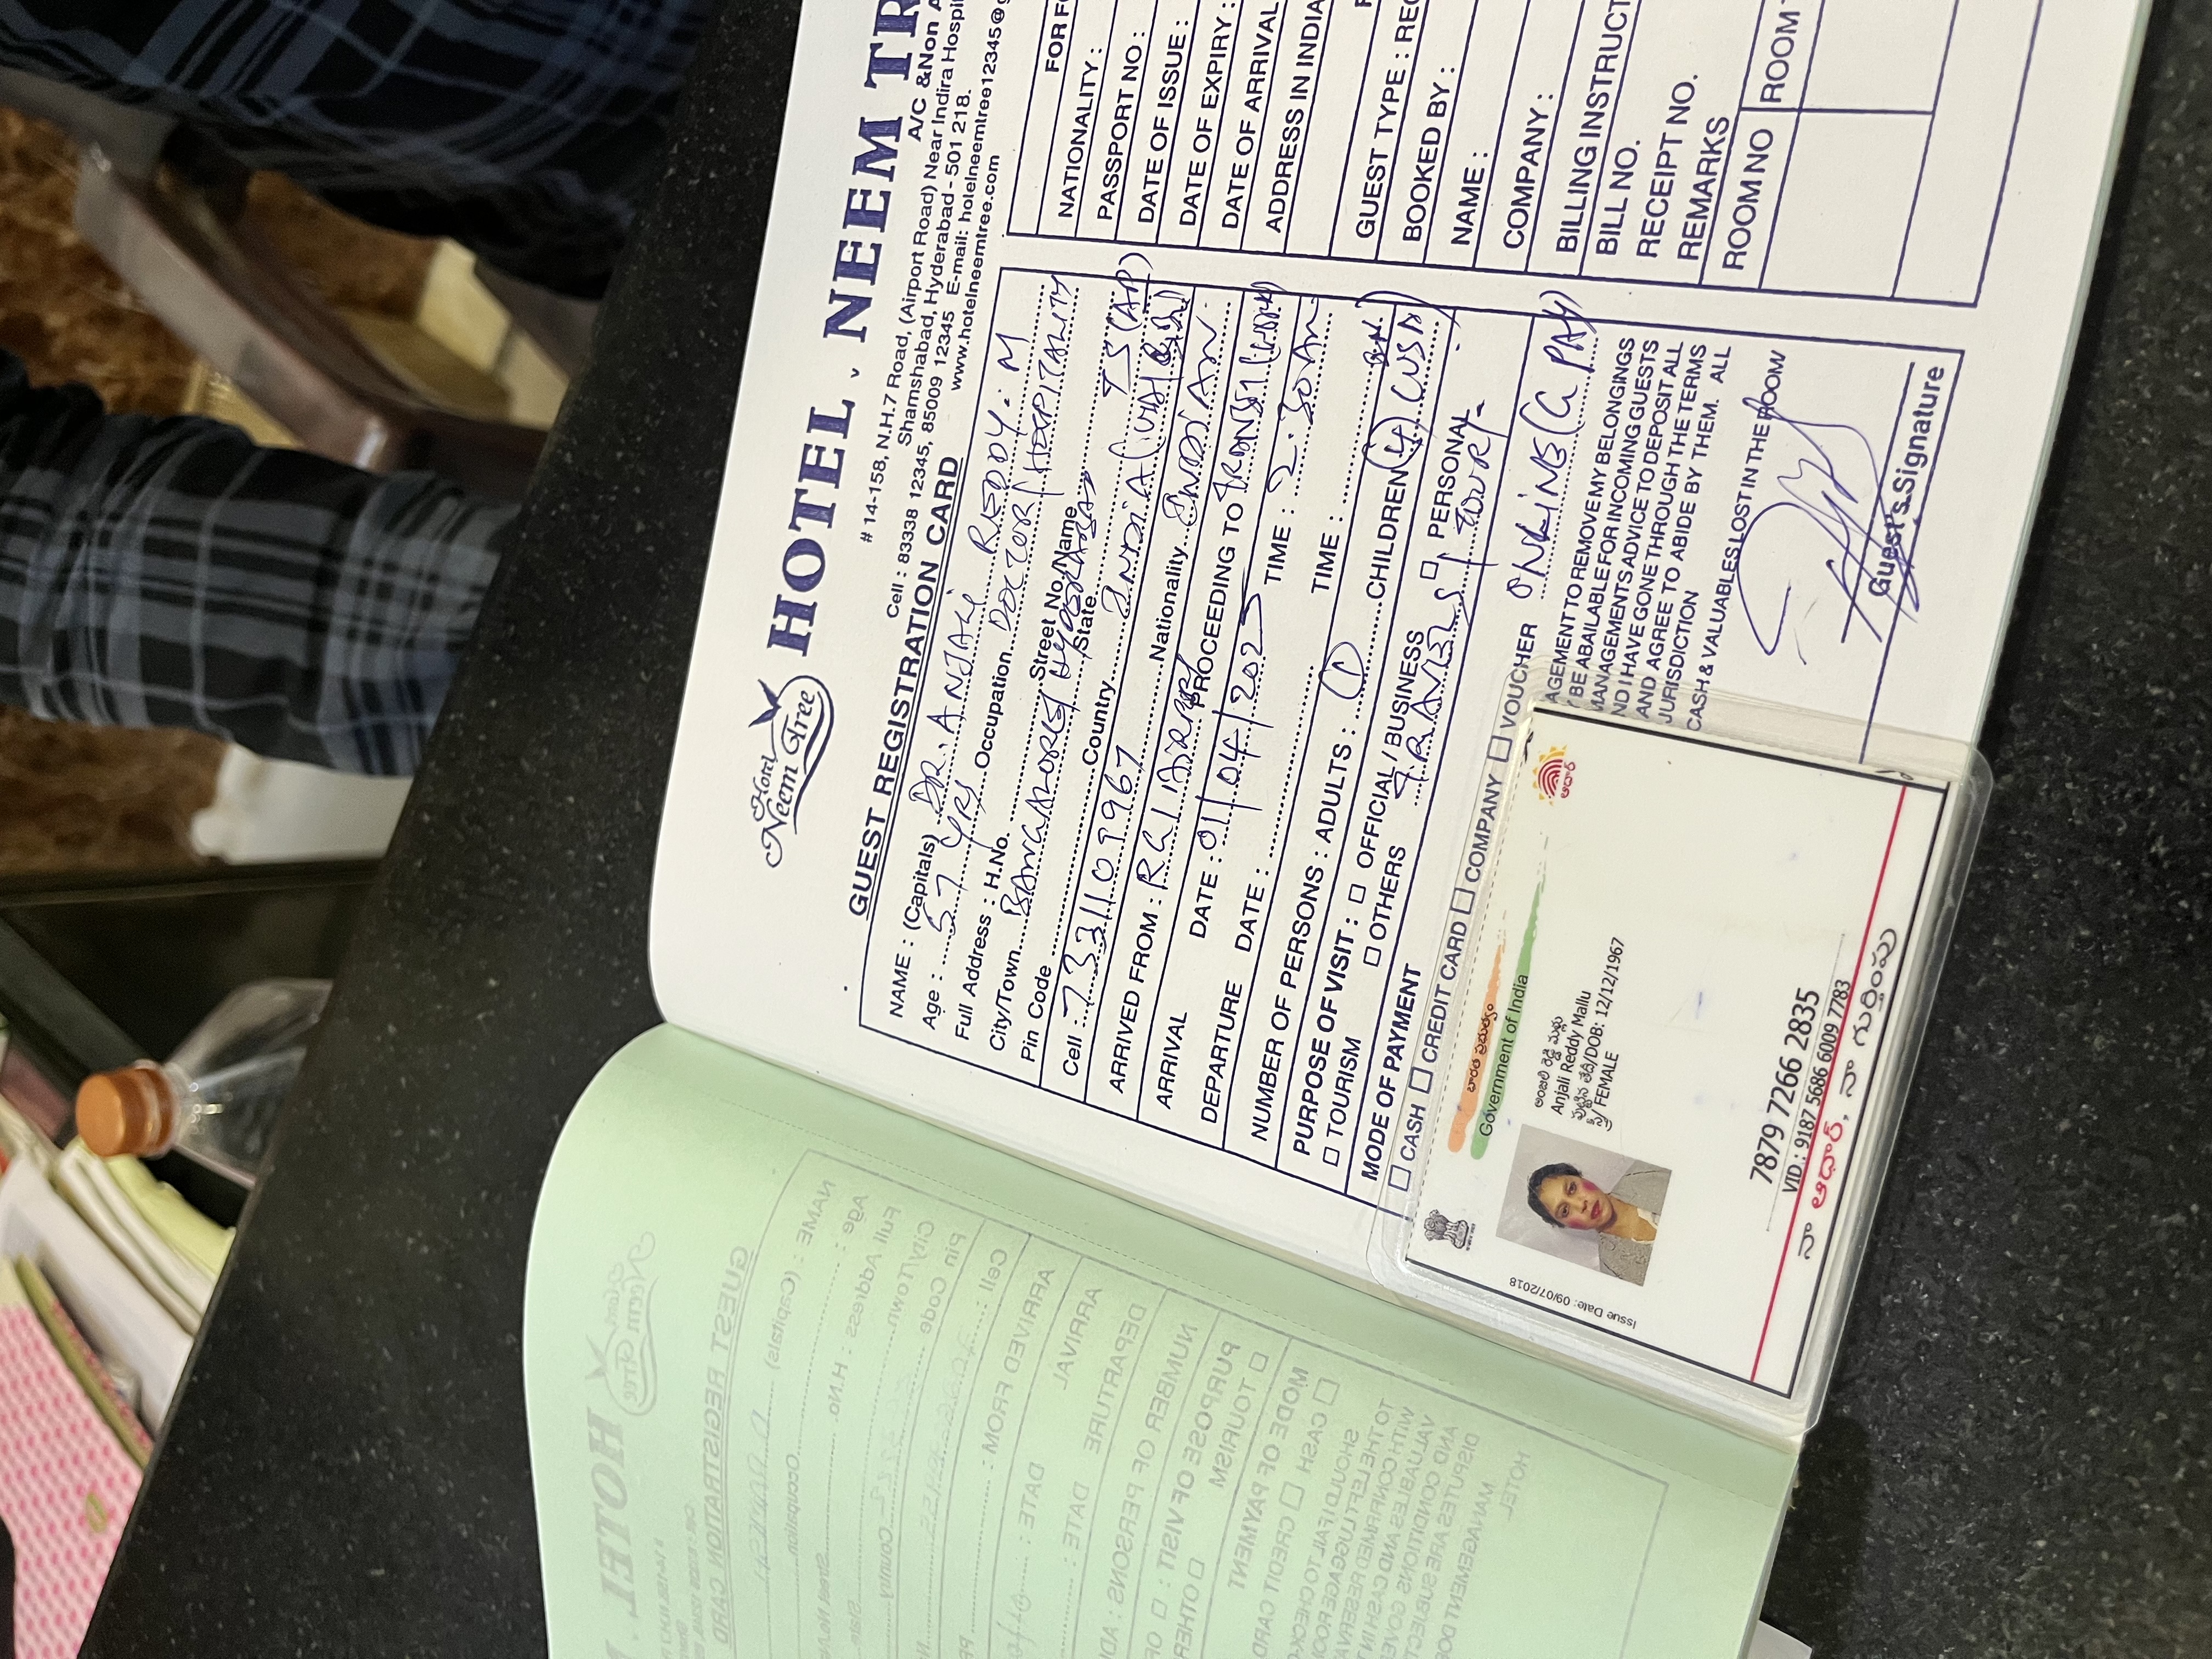 Hotel
Neem Tree
HOTEL . NEEM TR
# 14-158, N.H.7 Road, (Airport Road) Near Indira Hospi
A/C & Non A
Shamshabad, Hyderabad - 501 218.
Cell : 83338 12345, 85009 12345 E-mail: hotelneemtree12345@g
www.hotelneemtree.com
GUEST REGISTRATION CARD
NAME : (Capitals) DR. ANJALI REDDY. M
Age : 57 YRS Occupation DOCTOR / HOSPITALITY
Full Address : H.No. Street No/Name
City/Town BANGALORE / HYDERABAD State TS (AP)
Pin Code Country INDIA
Cell : 7331109967 Nationality INDIAN
ARRIVED FROM : RGI AIRPORT PROCEEDING TO
ARRIVAL DATE : 01/04/2025 TIME : 2:30 AM
DEPARTURE DATE : TIME :
NUMBER OF PERSONS : ADULTS : 1 CHILDREN (4) (USA)
PURPOSE OF VISIT : OFFICIAL / BUSINESS PERSONAL
TOURISM OTHERS TRAVELS / TOUR
MODE OF PAYMENT
CASH CREDIT CARD COMPANY VOUCHER ONLINE (G PAY)
AGEMENT TO REMOVE MY BELONGINGS
BE ABAILABLE FOR INCOMING GUESTS
MANAGEMENTS ADVICE TO DEPOSIT ALL
ND I HAVE GONE THROUGH THE TERMS
AND AGREE TO ABIDE BY THEM. ALL
JURISDICTION
CASH & VALUABLES LOST IN THE ROOM
Guest's Signature
FOR F
NATIONALITY :
PASSPORT NO :
DATE OF ISSUE :
DATE OF EXPIRY :
DATE OF ARRIVAL
ADDRESS IN INDIA
GUEST TYPE : REG
BOOKED BY :
NAME :
COMPANY :
BILLING INSTRUCT
BILL NO.
RECEIPT NO.
REMARKS
ROOM NO ROOM T
భారత ప్రభుత్వం
Government of India
ఆధార్
Issue Date: 09/07/2018
అంజలి రెడ్డి మల్లు
Anjali Reddy Mallu
పుట్టిన తేదీ/DOB: 12/12/1967
స్త్రీ/ FEMALE
7879 7266 2835
VID : 9187 5686 6009 7783
నా ఆధార్, నా గుర్తింపు